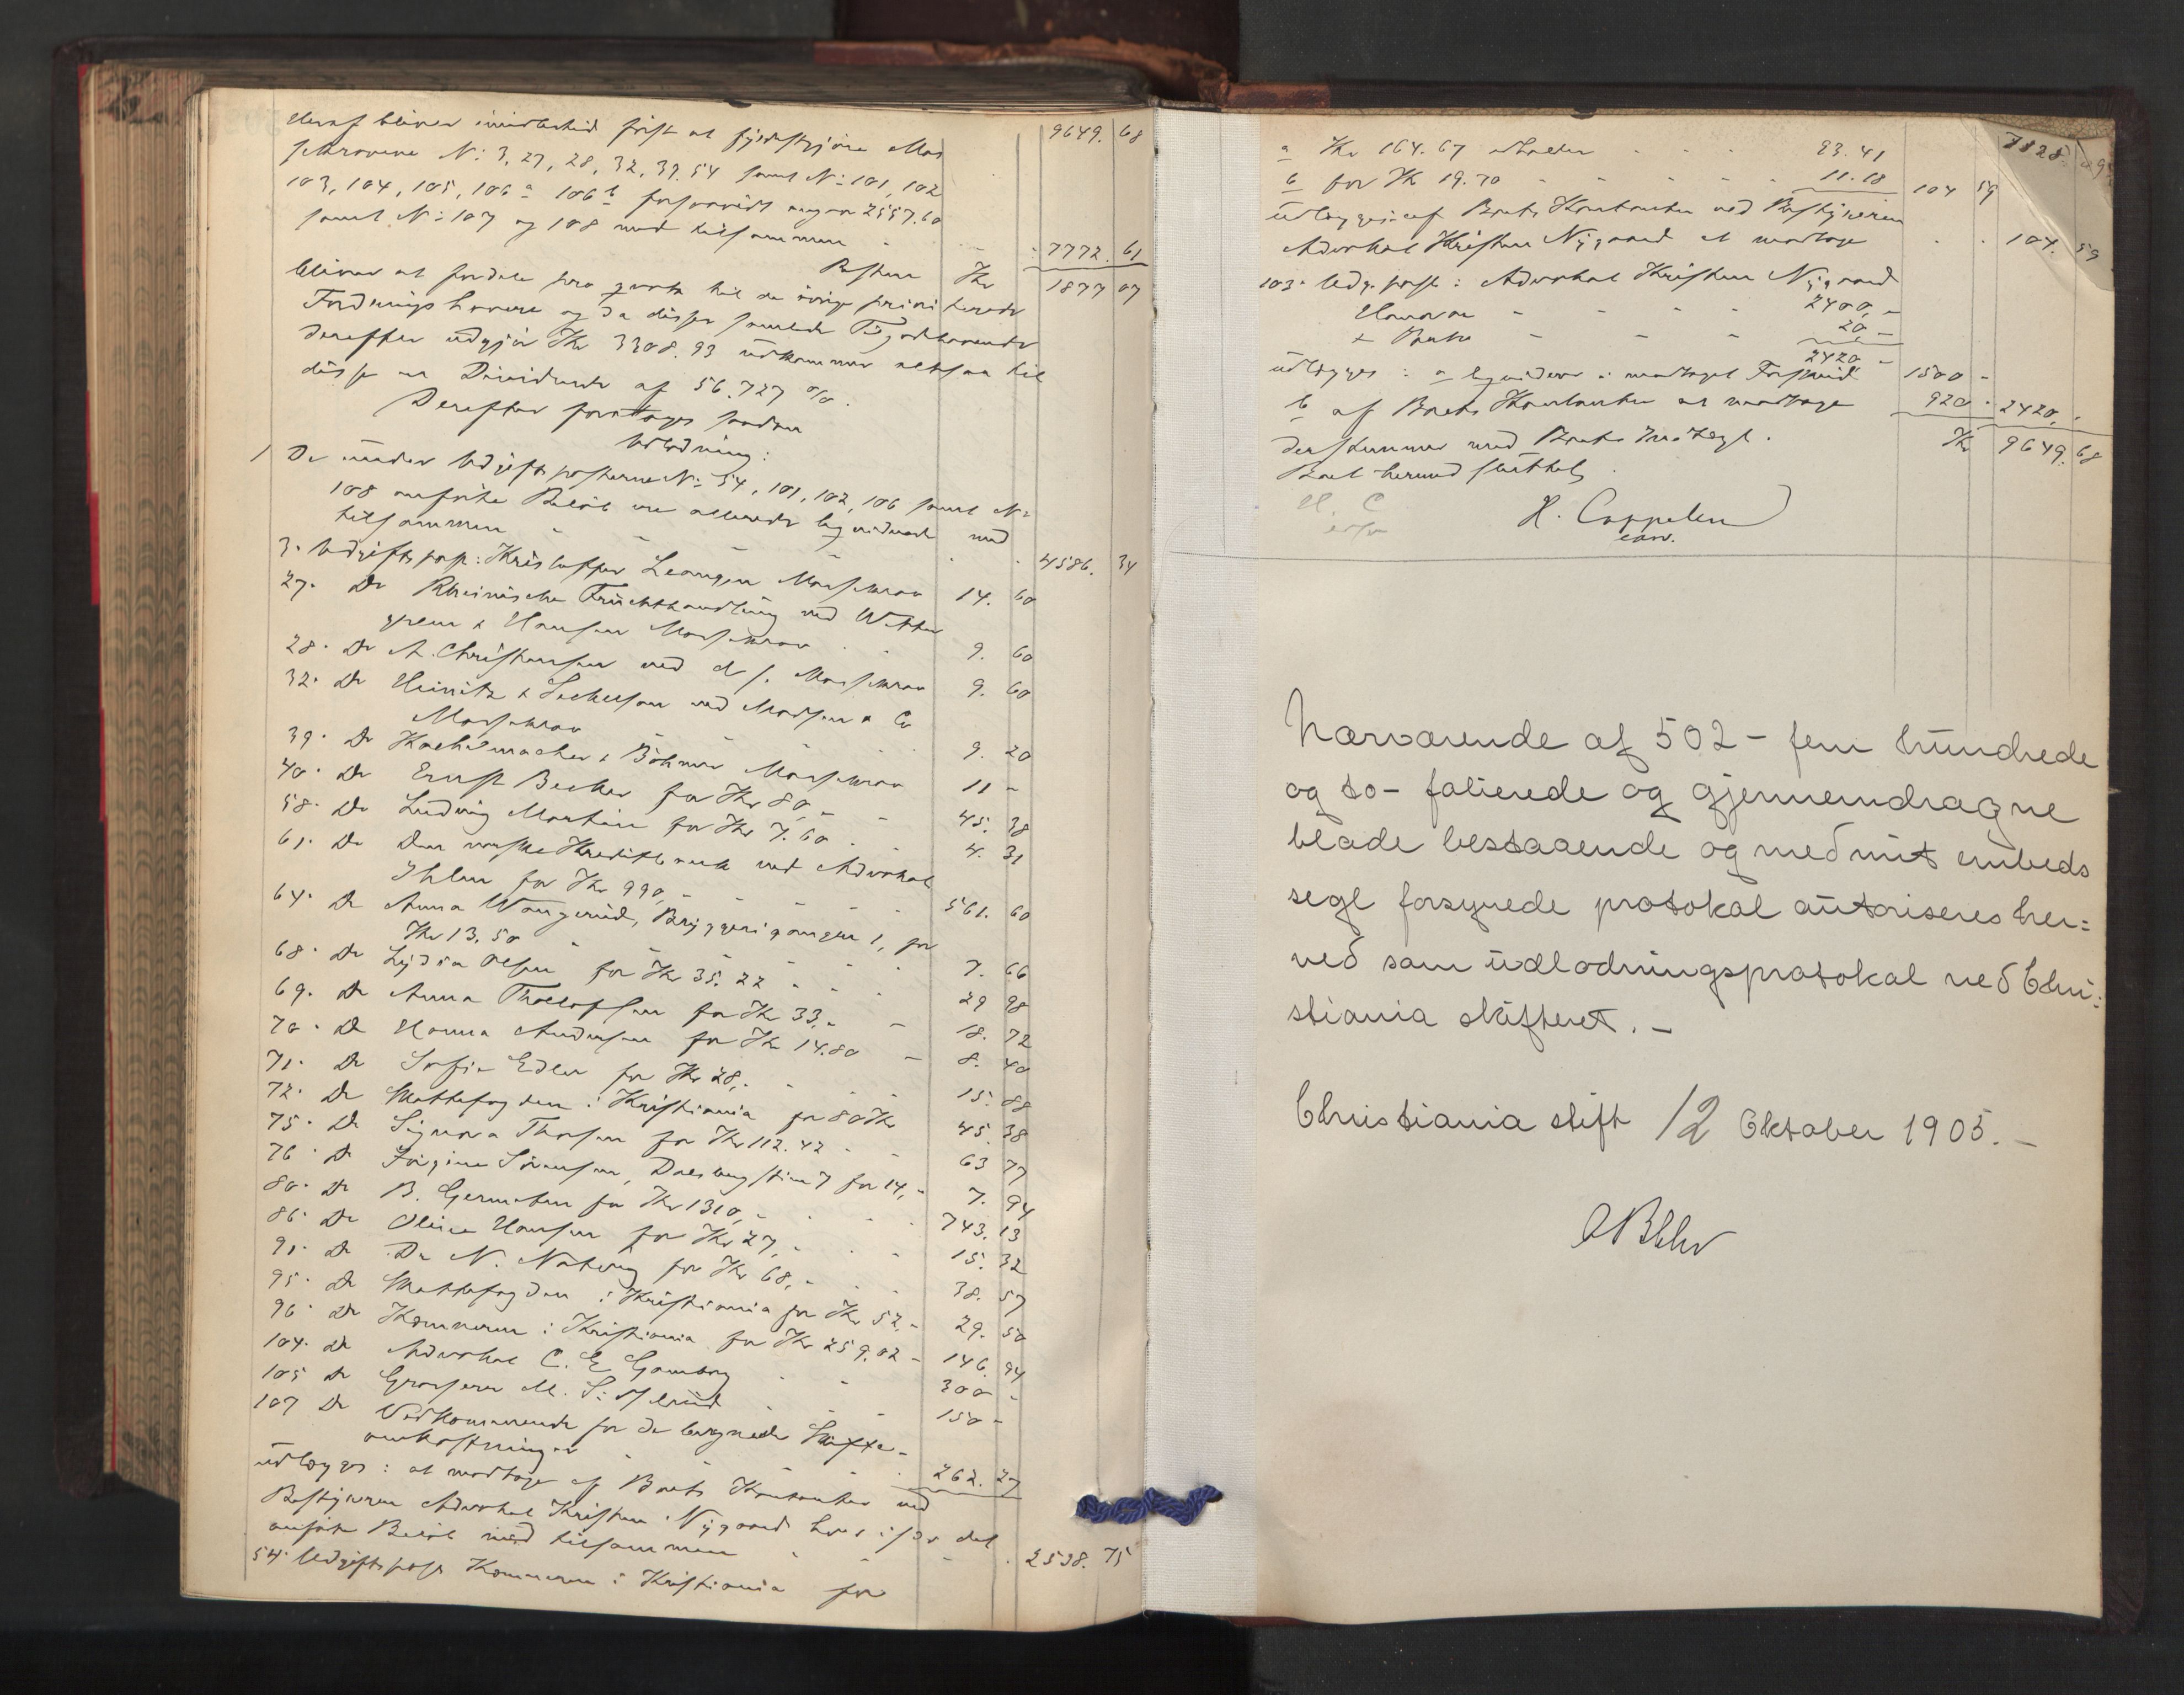 deraf bliver imidlertid först at fyldestgjöre Mas 9649. 68
sekravene N: 3, 27, 28, 32, 39, 54 samt N: 101, 102
103, 104, 105, 106 a 106 b forsaavidt angaar 2557.60
samt N: 107 og 108 med tilsammen - 7772. 61
Resten Kr 1877 07
bliver at fordele pro qvota til de övrige prioriterede
Fordringshavere og da disses samlede Tilgodehavende
derefter udgjör Kr 3308.93 udkommer altsaa til
disse en Dividende af 56.727 %.
Derefter foretoges saadan
Udlodning:
1 De under Udgiftsposterne N: 54, 101, 102, 106 samt N:
108 anförte Belöb ere allerede liqviderede med
tilsammen - - - - 4586. 34
3. Udgiftspost: Kristoffer Leangen Massekrav 14. 60
27. Do Rheinische Fruchthandlung ved Wetter
green & Hansen Massekrav 9. 60
28. Do A. Christensen ved d s. Massekrav 9. 60
32. Do Heinitz & Seckelson ved Madsen & Co
Massekrav 9. 20
39. Do Kachelmacher & Böhmer Massekrav 11 -
40. Do Ernst Becker for Kr 80,- 45. 38
58. Do Ludvig Martini for Kr 7.60 4. 31
61. Do Den norske Kreditbank ved Advokat
Ihlen for Kr 990,- 561. 60
64. Do Anna Wangerud, Bryggerigangen 1, for
Kr 13,50 7. 66
68. Do Lydia Olsen for Kr 35.22 29 98
69. Do Anna Thollefsen for Kr 33,- 18. 72
70. Do Hanna Andersen for Kr 14.80 - 8. 40
71. Do Sofie Edler for Kr 28,- 15. 88
72. Do Skattefogden i Kristiania for 80 Kr 45. 38
75. Do Signora Thorsen for Kr 112.42 63 77
76. Do Jörgine Sörensen, Dalsbergstien 7 for 14,- 7. 94
80. Do B. Germeten for Kr 1310,- 743. 13
86. Do Oline Hansen for Kr 27,- 15. 32
91. Do Dr N. Natvig for Kr 68,- 38. 57
95. Do Skattefogden i Kristiania for Kr 52,- 29. 50
96. Do Kæmneren i Kristiania for Kr 259.02 - 146. 94
104. Do Advokat C. E. Gamborg 300 -
105 Do Grosserer M. 150 -
107 Do Vedkommende for de beregnede Skifte-
omkostninger 262. 27
udlægges: at modtage af Boets Kontanter ved
Bestyreren Advokat Kristen Nygaard hver især det
anförte Belöb med tilsammen - - 2538. 75
54. Udgiftspost Kæmneren i Kristiania for
7128. 09
a Kr 164.67 93.41
b for Kr 19.70 - - - 11.18 104 59
udlægges: af Boets Kontanter ved Bestyreren
Advokat Kristen Nygaard at modtage . . 104. 59
103. Udg. post: Advokat Kristen Nygaard
Honorar - - - 2400,-
+ Porto - - - 20,-
2420 -
udlægges: a liqvideres i modtaget Forskud 1500 -
b af Boets Kontanter at modtage 920 - 2420, -
der stemmer med Boets Indtægt. Kr 9649. 68
Boet hermed sluttet.
H. C
H. Coppelen
const.
Nærværende af 502 - fem hundrede
og to - folierede og gjennemdragne
blade bestaaende og med mit embeds
segl forsynede protokol autoriseres her=
ved som udlodningsprotokol ved Chri=
stiania skifteret. -
Christiania stift 12 Oktober 1905. -